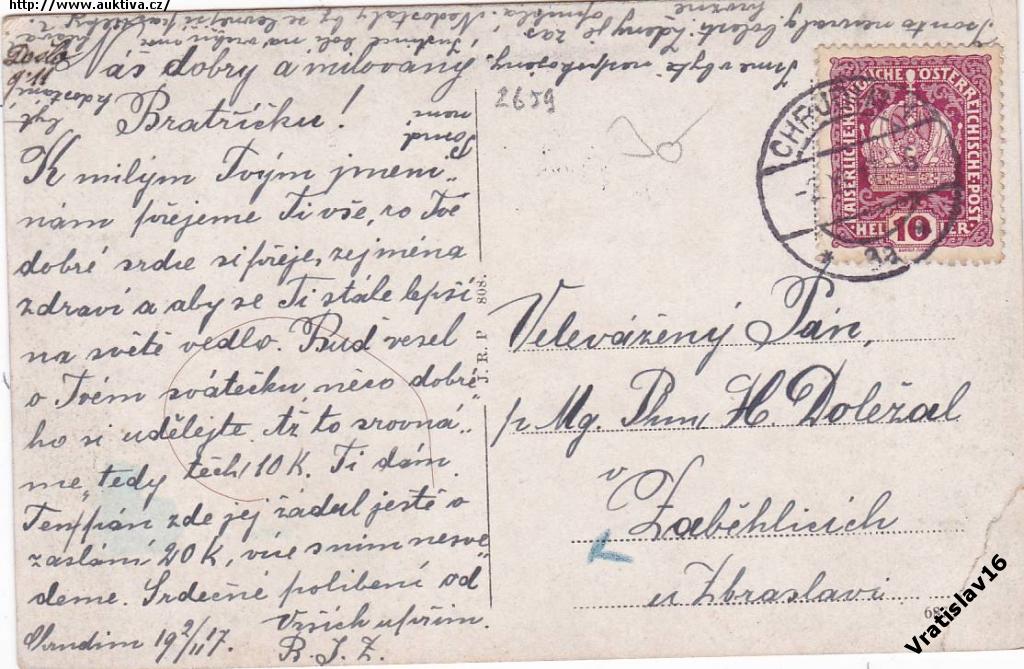 http://www.auktiva.cz/
Náš dobrý a milovaný
Bratříčku!
K milým Tvým jmeni„
nám přejeme Ti vše, co Tvé
dobré srdce si přeje, zejména
zdraví a aby se Ti stále lepší
na světě vedlo. Buď vesel
o Tvém svátečku, něco dobré„
ho si udělejte. Až to srovná„
me„ tedy těch 10 K. Ti dám.
Ten pán zde jej žádal ještě o
zaslání 20 K, více s ním nesve„
deme. Srdečné políbení od
Všech upřím.
Chrudim 19 2/11 17.
B. J. Z.
2659
30
J. R. P 808.
CHRUDIM
3a
KAISERLICHE KÖNIGLICHE ÖSTERREICHISCHE POST
HELLER 10
Velevážený Pán,
p Mg. Phm, H. Doležal
v
Zaběhlicích
u Zbraslavi
Vratislav16